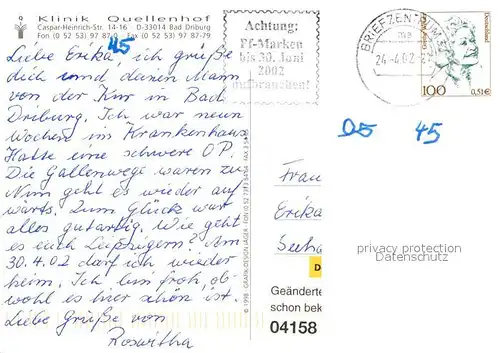 Klinik Quellenhof
Caspar-Heinrich-Str. 14-16 D-33014 Bad Driburg
Fon (0 52 53) 97 87-0 Fax (0 52 53) 97 87-79
45
Liebe Erika, ich grüße
dich und deinen Mann
von der Kur in Bad
Driburg. Ich war neun
Wochen im Krankenhaus
Hatte eine schwere OP.
Die Gallenwege waren zu
Nun geht es wieder auf
wärts. Zum Glück war
alles gutartig. Wie geht
es euch Leipzigern? Am
30.4.02 darf ich wieder
heim. Ich bin froh, ob-
wohl es hier schön ist.
Liebe Grüße von
Roswitha
© 1998 GRAFIK-DESIGN JÄGER
Achtung:
Pf-Marken
bis 30. Juni
2002
aufbrauchen!
BRIEFZENTRUM
24-4.02
100
0,51€
05 45
Frau
Erika
privacy protection
Datenschutz
D
Geänderte
schon bek
04158